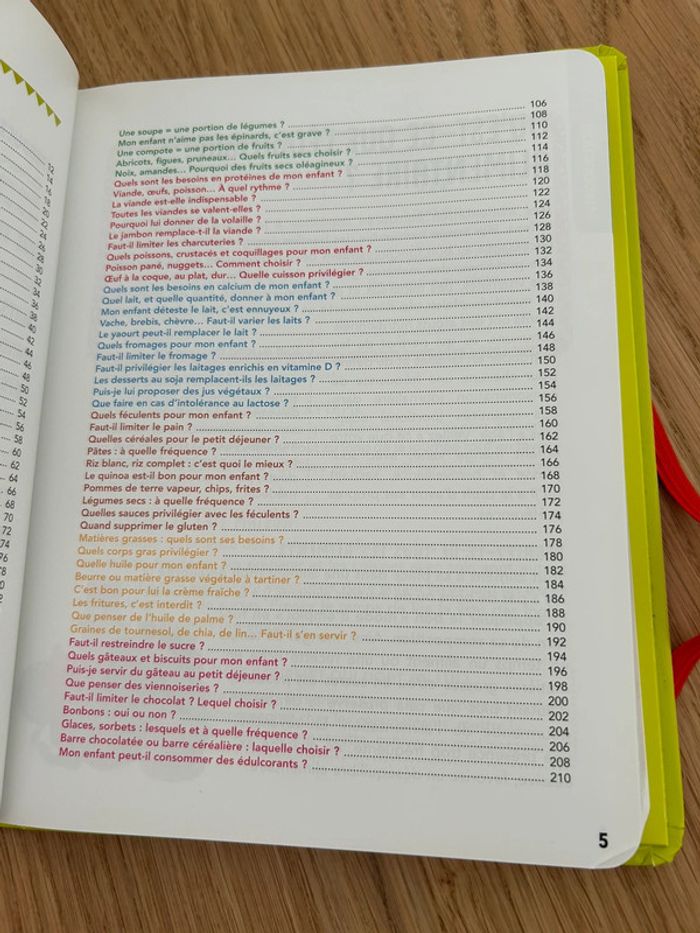 22
24
26
28
30
32
34
36
38
40
42
44
46
48
50
52
54
56
58
60
62
64
66
68
70
72
74
Une soupe = une portion de légumes ? 106
Mon enfant n'aime pas les épinards, c'est grave ? 108
Une compote = une portion de fruits ? 110
Abricots, figues, pruneaux... Quels fruits secs choisir ? 112
Noix, amandes... Pourquoi des fruits secs oléagineux ? 114
Quels sont les besoins en protéines de mon enfant ? 116
Viande, œufs, poisson... À quel rythme ? 118
La viande est-elle indispensable ? 120
Toutes les viandes se valent-elles ? 122
Pourquoi lui donner de la volaille ? 124
Le jambon remplace-t-il la viande ? 126
Faut-il limiter les charcuteries ? 128
Quels poissons, crustacés et coquillages pour mon enfant ? 130
Poisson pané, nuggets... Comment choisir ? 132
Œuf à la coque, au plat, dur... Quelle cuisson privilégier ? 134
Quels sont les besoins en calcium de mon enfant ? 136
Quel lait, et quelle quantité, donner à mon enfant ? 138
Mon enfant déteste le lait, c'est ennuyeux ? 140
Vache, brebis, chèvre... Faut-il varier les laits ? 142
Le yaourt peut-il remplacer le lait ? 144
Quels fromages pour mon enfant ? 146
Faut-il limiter le fromage ? 148
Faut-il privilégier les laitages enrichis en vitamine D ? 150
Les desserts au soja remplacent-ils les laitages ? 152
Puis-je lui proposer des jus végétaux ? 154
Que faire en cas d'intolérance au lactose ? 156
Quels féculents pour mon enfant ? 158
Faut-il limiter le pain ? 160
Quelles céréales pour le petit déjeuner ? 162
Pâtes : à quelle fréquence ? 164
Riz blanc, riz complet : c'est quoi le mieux ? 166
Le quinoa est-il bon pour mon enfant ? 168
Pommes de terre vapeur, chips, frites ? 170
Légumes secs : à quelle fréquence ? 172
Quelles sauces privilégier avec les féculents ? 174
Quand supprimer le gluten ? 176
Matières grasses : quels sont ses besoins ? 178
Quels corps gras privilégier ? 180
Quelle huile pour mon enfant ? 182
Beurre ou matière grasse végétale à tartiner ? 184
C'est bon pour lui la crème fraîche ? 186
Les fritures, c'est interdit ? 188
Que penser de l'huile de palme ? 190
Graines de tournesol, de chia, de lin... Faut-il s'en servir ? 192
Faut-il restreindre le sucre ? 194
Quels gâteaux et biscuits pour mon enfant ? 196
Puis-je servir du gâteau au petit déjeuner ? 198
Que penser des viennoiseries ? 200
Faut-il limiter le chocolat ? Lequel choisir ? 202
Bonbons : oui ou non ? 204
Glaces, sorbets : lesquels et à quelle fréquence ? 206
Barre chocolatée ou barre céréalière : laquelle choisir ? 208
Mon enfant peut-il consommer des édulcorants ? 210
5